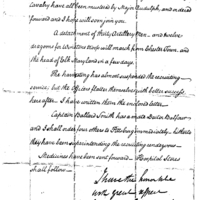 Cavalry have all been mustered by Major Rudolph, and ordered
forward and I hope will soon join you.
A detachment of thirty Artillery Men, and twelve
dragoons for Winston's troop will march from Chester Town, and
the head of Elk Maryland in a few days.
The harvesting has almost suspended the recruiting
service, but the Officers flatter themselves with better success
hereafter. I have written them the enclosed letter.
Captain Ballard Smith has a
and I shall order four others to Pittsburg immediately, hitherto
they have been superintending the rendezvous.
Medicines have been sent forward. Hospital stores
shall follow.
I have the honor to be
with great esteem